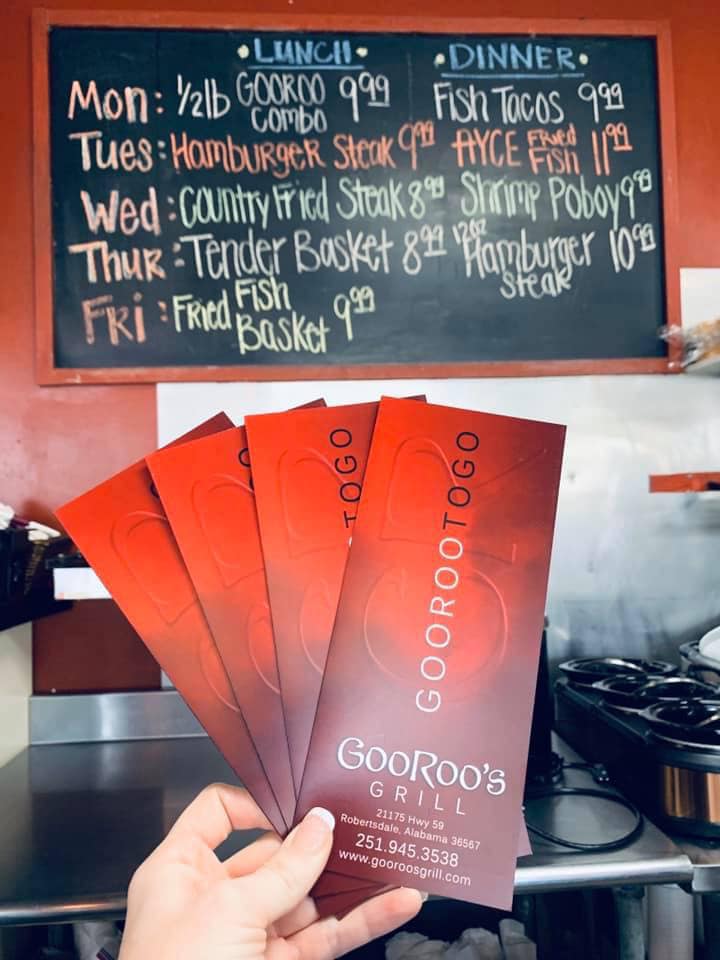 LUNCH DINNER
Mon: 1/2lb GOOROO Combo 9.99 Fish Tacos 9.99
Tues: Hamburger Steak 9.99 AYCE Fried Fish 11.99
Wed: Country Fried Steak 8.99 Shrimp Poboy 9.99
Thur: Tender Basket 8.99 12oz Hamburger Steak 10.99
Fri: Fried Fish Basket 9.99
TOGO
GOOROOTOGO
GOOROO'S
GRILL
21175 Hwy 59
Robertsdale, Alabama 36567
251.945.3538
www.gooroosgrill.com